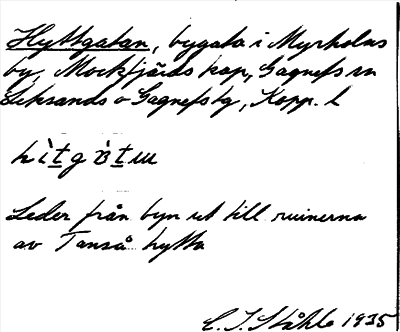 Hyttgatan, bygata i Myrholns
by, Mockfjärds kap, Gagnefs sn
Leksands o Gagnefs tg, Kopp. l
Leder från byn ut till ruinerna
av Tanså hytta
E. I. Ståhle 1935